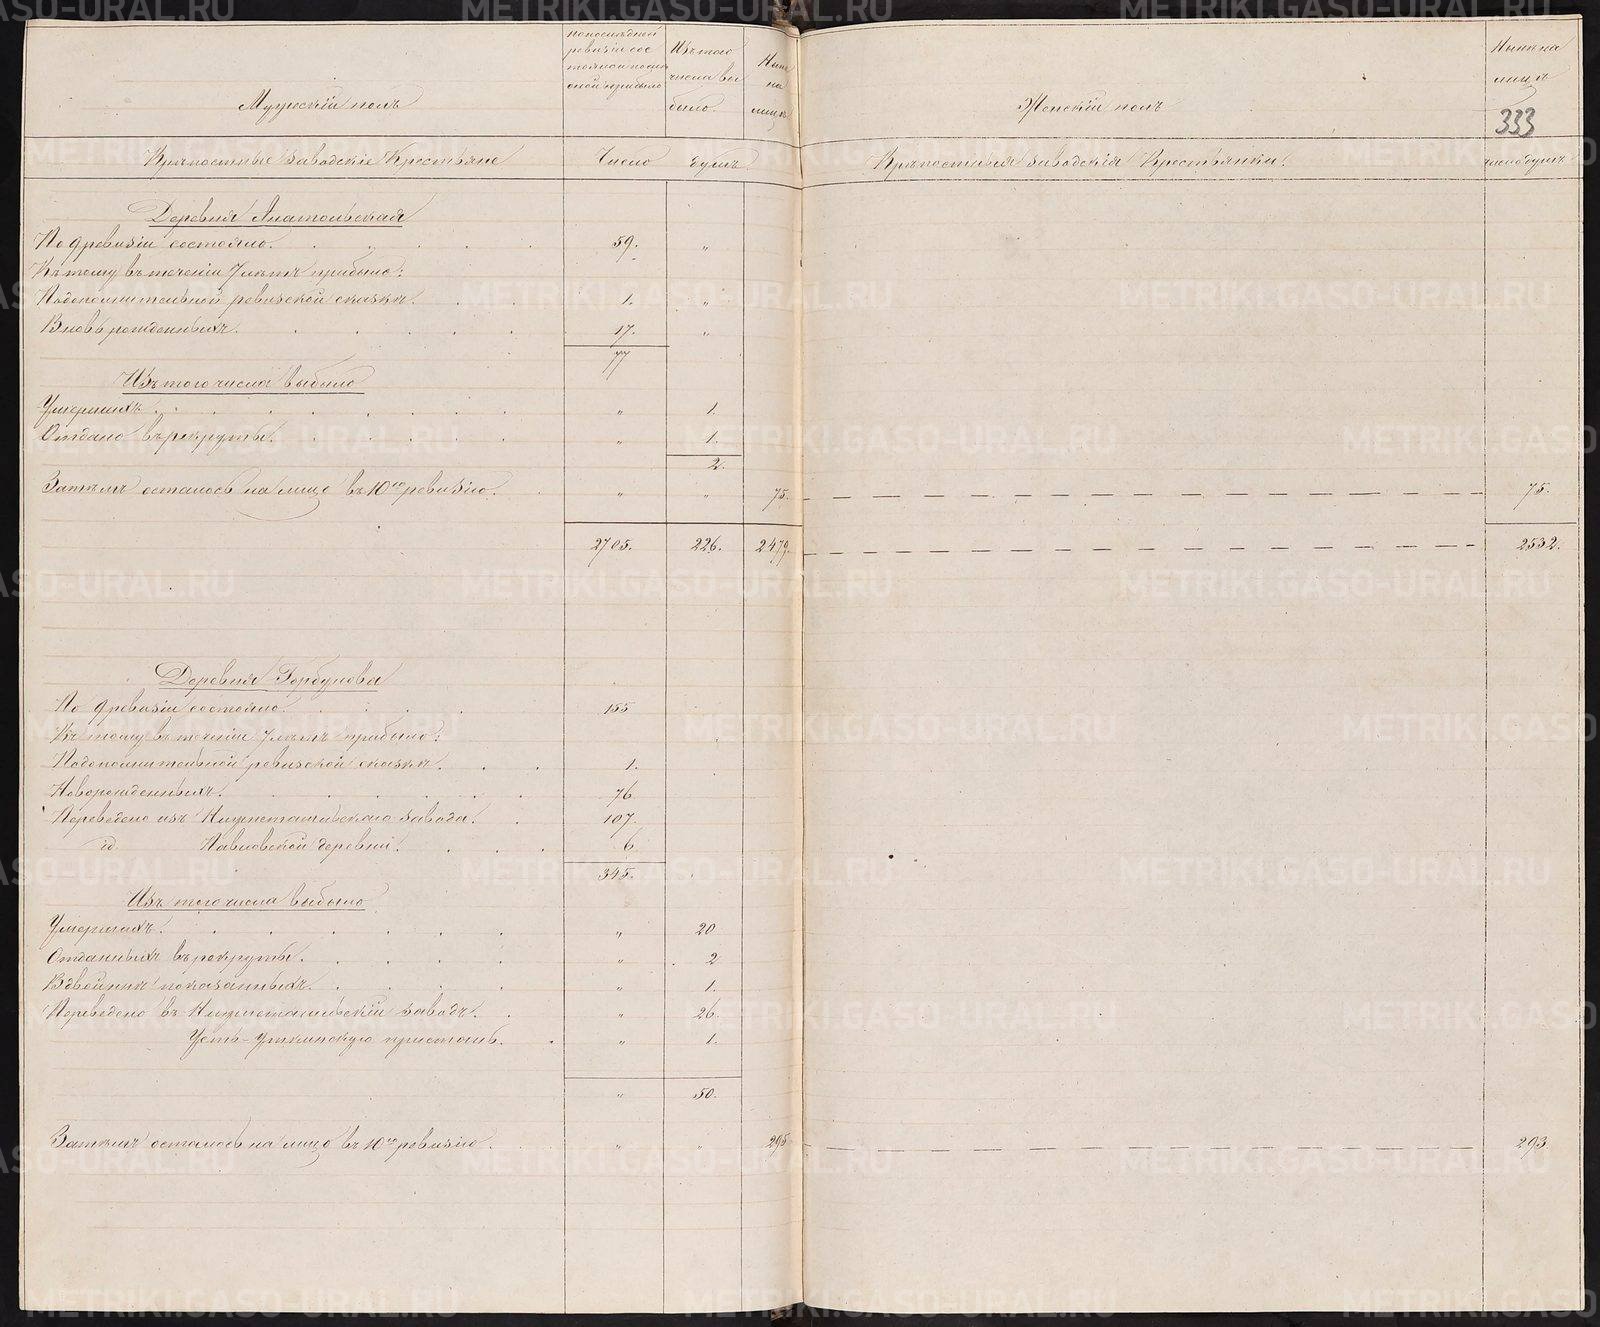 Мужескій полъ
По послѣдней
ревизіи сос
тояло и после
оной прибыло
Изъ того
числа вы
было.
Нынѣ
на
лицо
Женскій полъ
Нынѣ на
лицо
333
Крѣпостные Заводскіе Крестьяне Число душъ Крѣпостныя Заводскія Крестьянки. число душъ
Деревня Анатольская
По 9 ревизіи состояло. 59. "
Къ тому въ теченіи 7 лѣтъ прибыло:
По дополнительной ревизской сказкѣ. 1. "
Вновь рожденныхъ. 17. "
77
Изъ того числа выбыло
Умершихъ. " 1.
Отдано въ рекруты. " 1.
2.
Затѣмъ осталось на лицо въ 10ю ревизію. " " 75. 75.
2705. 226. 2479. 2532.
Деревня Горбунова
По 9 ревизіи состояло. 155
Къ тому въ теченіи 7 лѣтъ прибыло:
По дополнительной ревизской сказкѣ. 1.
Новорожденныхъ. 76
Переведено изъ Нижнетагильскаго завода. 107.
id Павловской деревни. 6
345.
Изъ того числа выбыло
Умершихъ. " 20
Отданныхъ въ рекруты. " 2
Вдвойнѣ показанныхъ. " 1.
Переведено въ Нижнетагильскій заводъ. " 26.
Усть-Уткинскую пристань. " 1.
" 50.
Затѣмъ осталось на лицо въ 10ю ревизію. " " 295 293.
METRIKI.GASO-URAL.RU